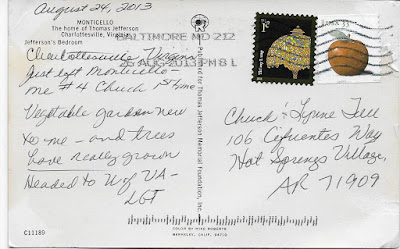 August 24, 2013
MONTICELLO
The home of Thomas Jefferson
Charlottesville, Virginia
Jefferson's Bedroom
BALTIMORE MD 212
26 AUG 2013 PM 8 L
Charlottesville Virginia
Just left Monticello -
me #4 Chuck 1st time
Vegetable garden new
to me - and trees
have really grown
Headed to U of VA -
C11189
for Thomas Jefferson Memorial Foundation, Inc.
COLOR BY MIKE ROBERTS
BERKELEY, CALIF. 94710
1¢
33
Chuck & Lynne
106 Cifuentes Way
Hot Springs Village,
AR 71909